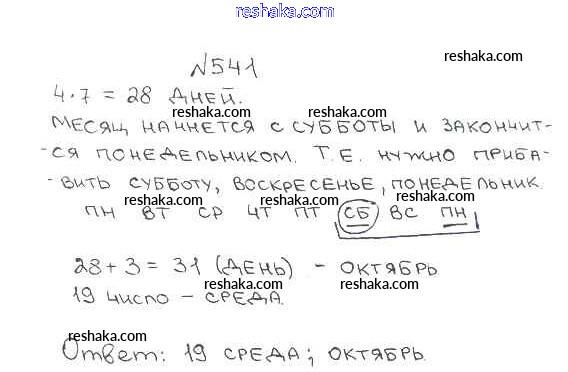 reshaka.com
№541
reshaka.com
4·7 = 28 дней.
reshaka.com
reshaka.com
Месяц начнется с субботы и закончит-
-ся понедельником. Т.е. нужно приба-
-вить субботу, воскресенье, понедельник.
reshaka.com
reshaka.com
reshaka.com
пн вт ср чт пт сб вс пн
28 + 3 = 31 (день) - октябрь
reshaka.com
reshaka.com
19 число - среда.
reshaka.com
Ответ: 19 среда; октябрь.
reshaka.com